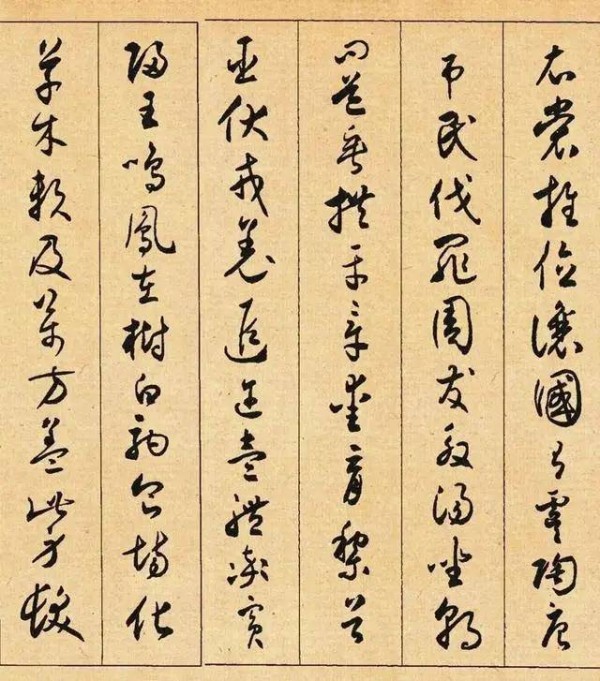 衣裳推位讓國有虞陶唐
吊民伐罪周發殷湯坐朝
問道垂拱平章愛育黎首
臣伏戎羌遐邇壹體率賓
歸王鳴鳳在樹白駒食場化
草木賴及萬方蓋此身髮